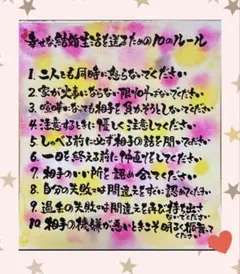 幸せな結婚生活を送るための10のルール
1. 二人とも同時に怒らないでください
2. 家が火事にならない限り怒鳴らないでください
3. 喧嘩になっても相手を負かそうとしないでください
4. 注意するときは優しく注意してください
5. しゃべる前に必ず相手の話を聞いてください
6. 一日を終える前に仲直りをしてください
7. 相手のいい所を認め合ってください
8. 自分の失敗や間違えをすぐに認めてください
9. 過去の失敗や間違えを再び持ち出さ
ないでください
10. 相手の機嫌が悪いときこそ明るく振舞って
ください